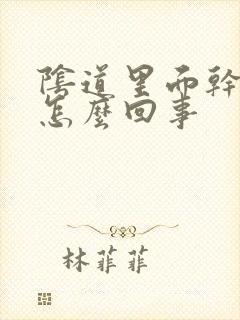 陰道里而幹
怎麼回事
林菲菲